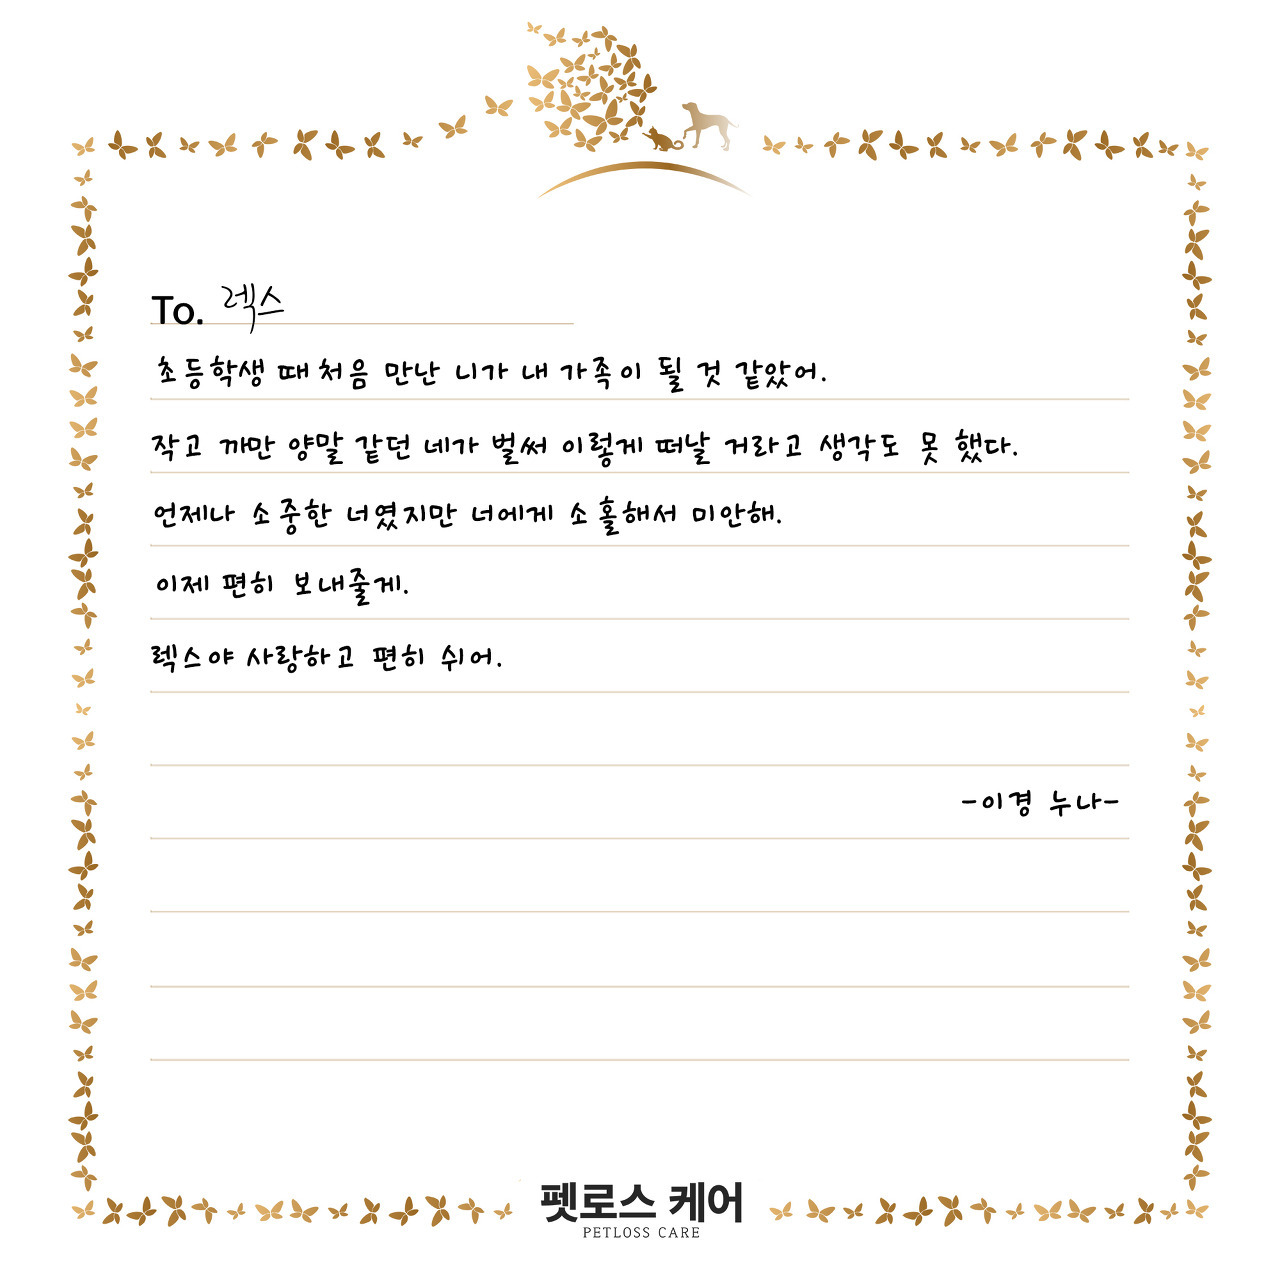 To. 렉스
초등학생 때 처음 만난 니가 내 가족이 될 것 같았어.
작고 까만 양말 같던 네가 벌써 이렇게 떠날 거라고 생각도 못 했다.
언제나 소중한 너였지만 너에게 소홀해서 미안해.
이제 편히 보내줄게.
렉스야 사랑하고 편히 쉬어.
-이경 누나-
펫로스 케어
PETLOSS CARE